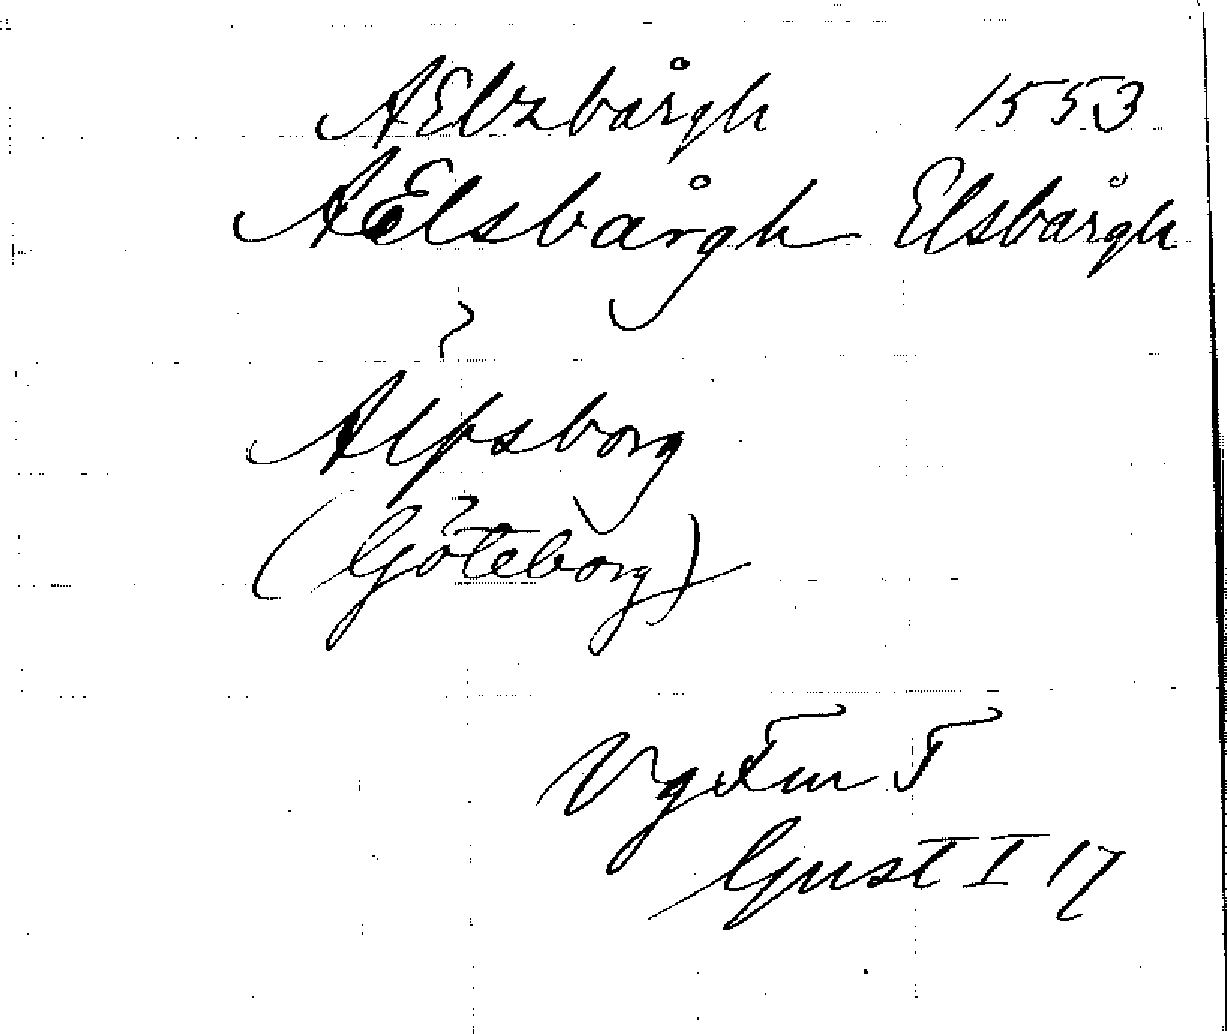 AElzbårgh 1553
AElsbårgh Elsbårgh
Alfsborg
(Göteborg)
Vg
Gust I 17